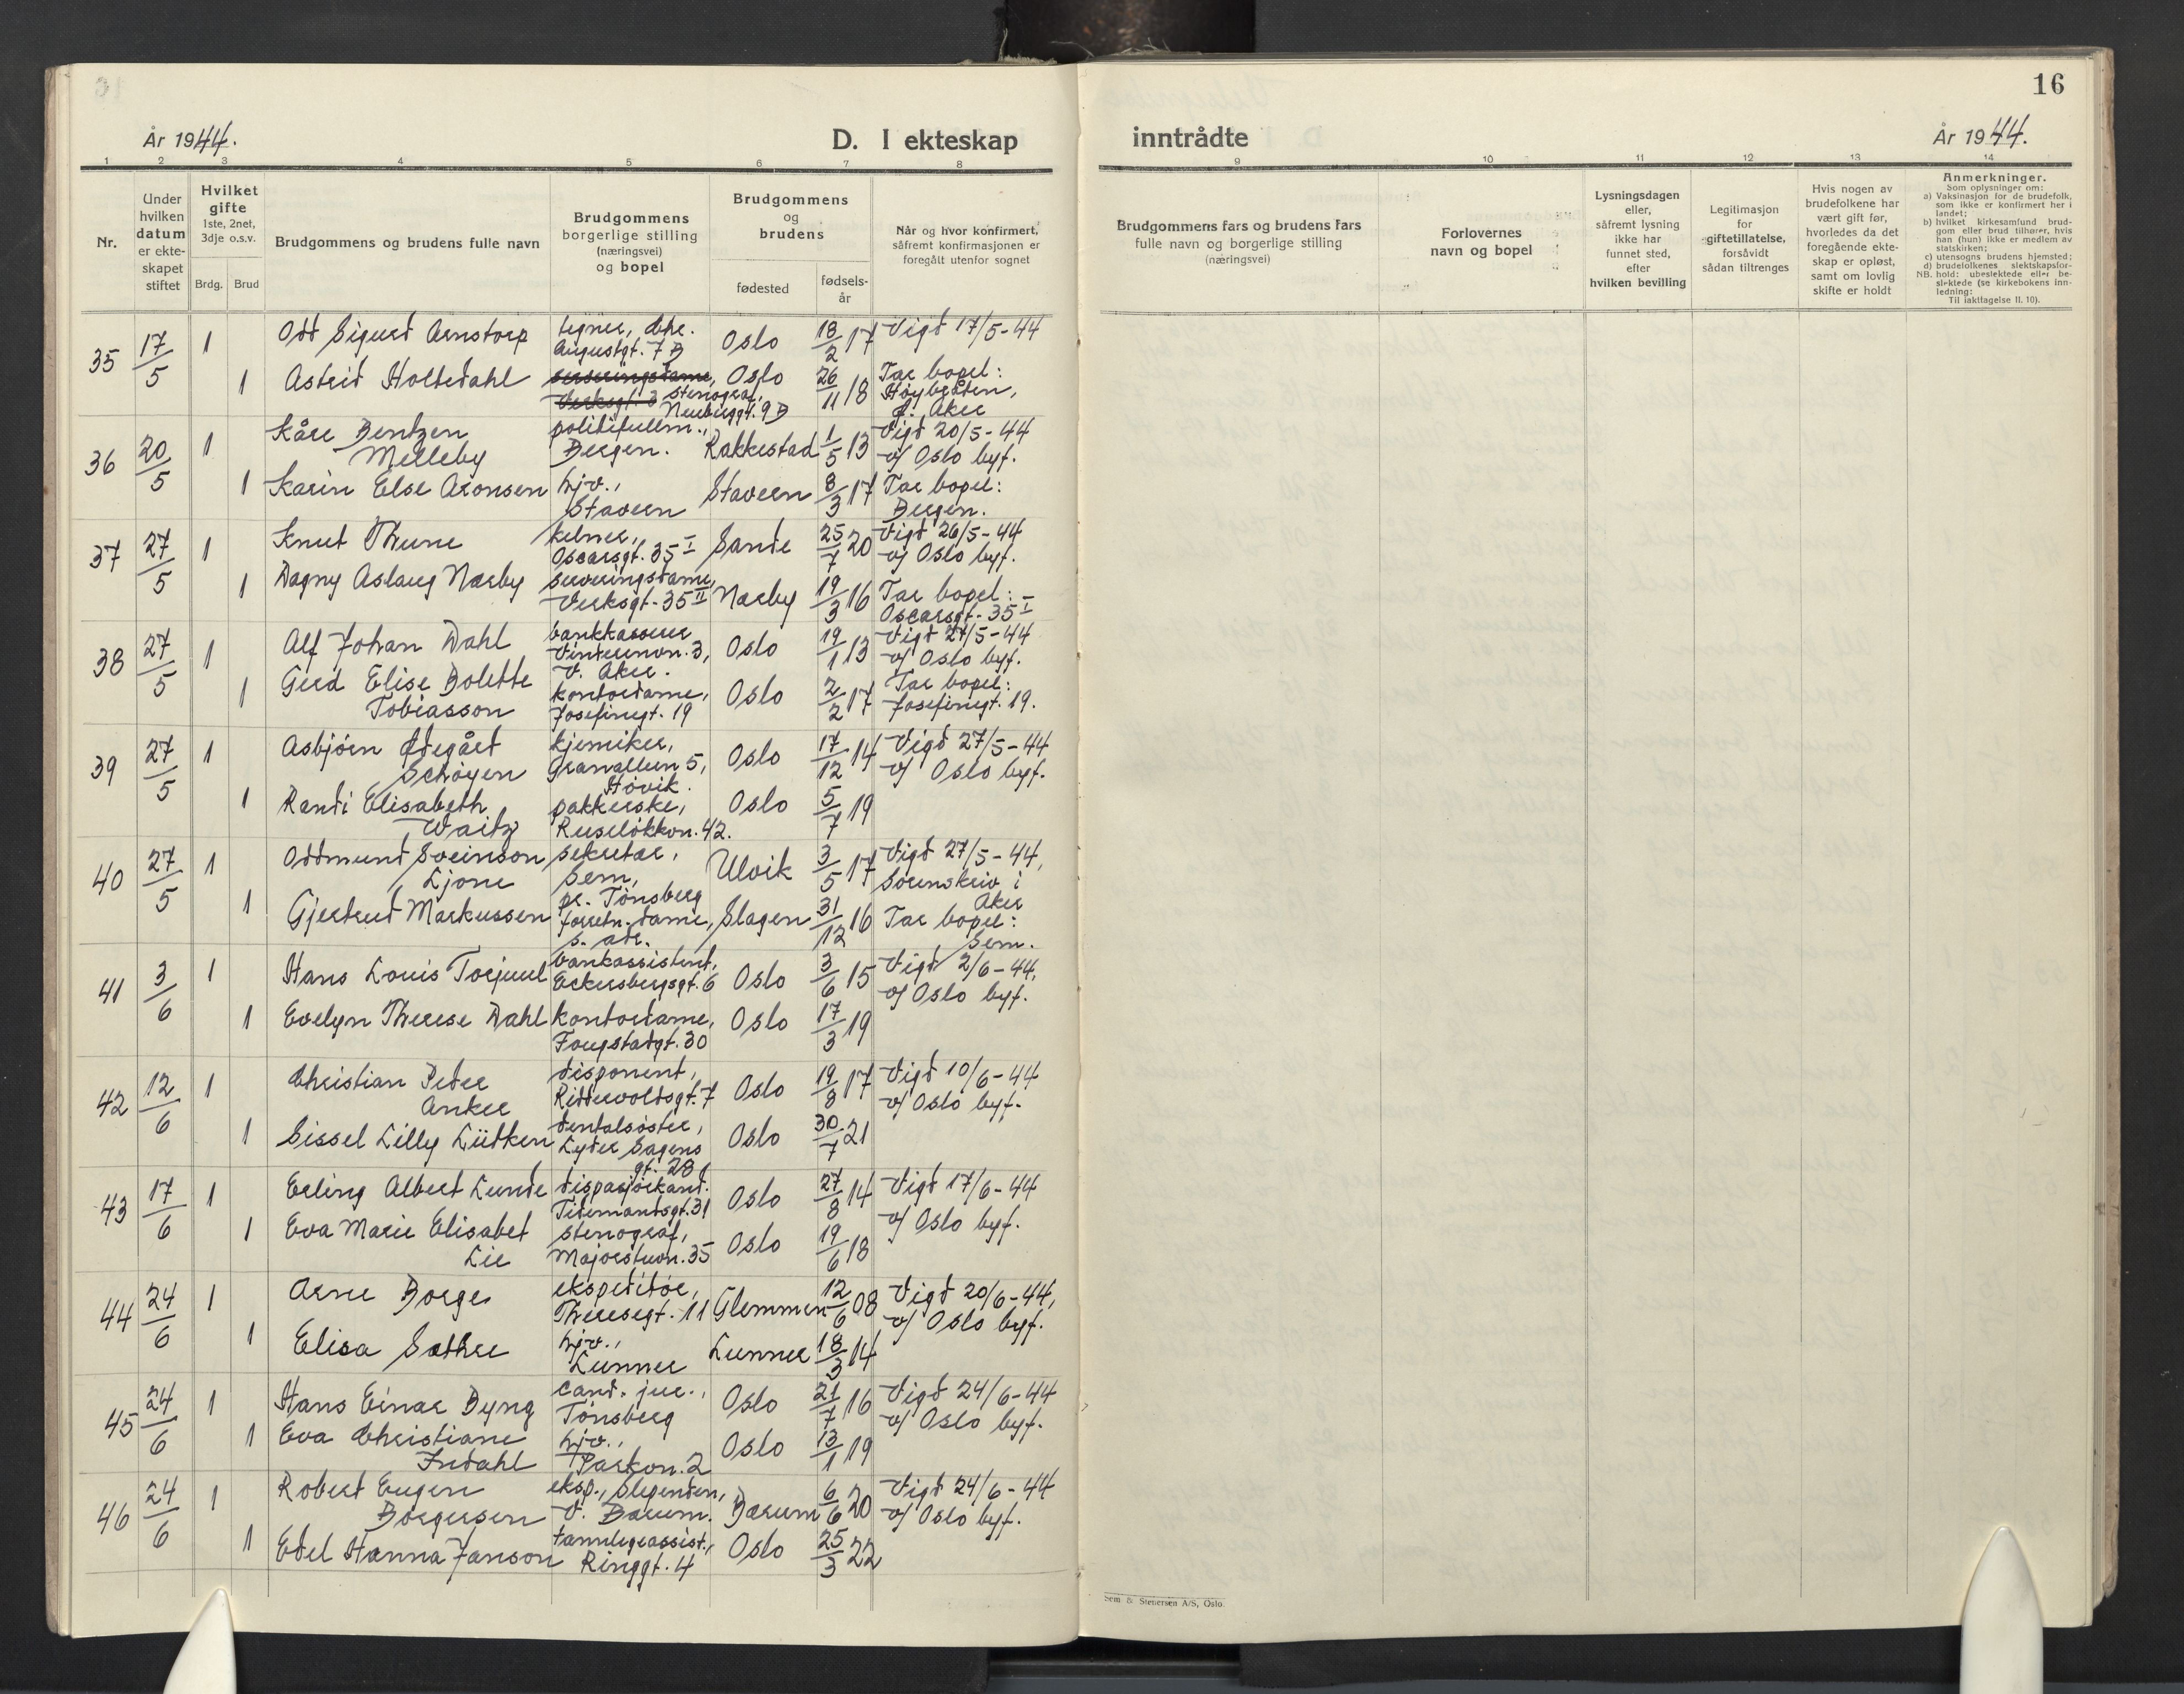 16
År 1944.
D. I ekteskap
inntrådte
År 1944.
1 2 3 4 5 6 7 8 9 10 11 12 13 14
Nr.
Under
hvilken
datum
er ekte-
skapet
stiftet
Hvilket
gifte
1ste, 2net,
3dje o.s.v.
Brdg. Brud
Brudgommens og brudens fulle navn
Brudgommens
borgerlige stilling
(næringsvei)
og bopel
Brudgommens
og
brudens
fødested
fødsels-
år
Når og hvor konfirmert,
såfremt konfirmasjonen er
foregått utenfor sognet
Brudgommens fars og brudens fars
fulle navn og borgerlige stilling
(næringsvei)
Forlovernes
navn og bopel
Lysningsdagen
eller,
såfremt lysning
ikke har
funnet sted,
efter
hvilken bevilling
Legitimasjon
for
giftetillatelse,
forsåvidt
sådan tiltrenges
Hvis nogen av
brudefolkene har
vært gift før,
hvorledes da det
foregående ekte-
skap er opløst,
samt om lovlig
skifte er holdt
Anmerkninger.
Som oplysninger om:
a) Vaksinasjon for de brudefolk,
som ikke er konfirmert her i
landet;
b) hvilket kirkesamfund brud-
gom eller brud tilhører, hvis
han (hun) ikke er medlem av
statskirken;
c) utensogns brudens hjemsted;
d) brudefolkenes slektskapsfor-
NB. hold: ubeslektede eller be-
slektede (se kirkebokens inn-
ledning:
Til iakttagelse II. 10).
35 17/5 1 Odd Sigurd Arnstorp tegner, Chr. Oslo 18/2 17 Vigd 17/5-44
Augustgt. 7 B
1 Astrid Holtedahl serveringsdame, Oslo 26/11 18 Tar bopel:
Verksgt. 3 stenograf, Høybråten,
Neuberggt. 9 B Ø. Aker
36 20/5 1 Kåre Bentzen politifullm., Rakkestad 1/5 13 Vigd 20/5-44
Melleby Bergen. v/ Oslo byf.
1 Karin Else Aronsen hjv., Stavern 8/3 17 Tar bopel:
Stavern Bergen.
37 27/5 1 Knut Thune kelner, Sande 25/7 20 Vigd 26/5-44
Oscarsgt. 35 I v/ Oslo byf.
1 Dagny Aslaug Nærby serveringsdame, Nærby 19/3 16 Tar bopel:
Verksgt. 35 II Oscarsgt. 35 I
38 27/5 1 Alf Johan Dahl bankkasserer Oslo 19/1 13 Vigd 27/5-44
Vinderenvn. 3, v/ Oslo byf.
V. Aker.
1 Gerd Elise Bolette kontordame, Oslo 2/2 17 Tar bopel:
Tobiasson Josefinegt. 19 Josefinegt. 19.
39 27/5 1 Asbjørn Ødegård kjemiker, Oslo 17/12 14 Vigd 27/5-44
Schøyen Granalleen 5, v/ Oslo byf.
Høvik.
1 Randi Elisabeth pakkerske, Oslo 5/7 19
Waitz Ruseløkkvn. 42.
40 27/5 1 Oddmund Sveinson sekretær, Ulvik 3/5 17 Vigd 27/5-44,
Ljone Sem, Sorenskriv i
pr. Tønsberg Aker
1 Gjertrud Markussen forretn. dame, Slagen 31/12 16 Tar bopel:
s. adr. Sem.
41 3/6 1 Hans Louis Torjuul bankassistent, Oslo 3/6 15 Vigd 2/6-44,
Eckersbergsgt. 6 v/ Oslo byf.
1 Evelyn Therese Dahl kontordame, Oslo 17/3 19
Fougstadgt. 30
42 12/6 1 Christian Peder disponent, Oslo 19/8 17 Vigd 10/6-44
Anker Riddervoldsgt. 7 v/ Oslo byf.
1 Sissel Lilly Lütken dentalsøster, Oslo 30/7 21
Lyder Sagens
gt. 28
43 17/6 1 Erling Albert Lunde dispasjørkand. Oslo 27/8 14 Vigd 17/6-44
Tidemandsgt. 31 v/ Oslo byf.
1 Eva Marie Elisabet stenograf, Oslo 19/6 18
Lie Majorstuvn. 35
44 24/6 1 Arne Borge ekspeditør, Glemmen 12/6 08 Vigd 20/6-44,
Theresegt. 11 v/ Oslo byf.
1 Elisa Sæther hjv., Lunner 18/3 14
Lunner
45 24/6 1 Hans Einar Byng cand. jur., Oslo 21/7 16 Vigd 24/6-44
Tønsberg v/ Oslo byf.
1 Eva Christiane hjv., Oslo 13/1 19
Indahl Parkvn. 2
46 24/6 1 Robert Eugen eksp., Slependen, Bærum 6/6 20 Vigd 24/6-44
Borgersen V. Bærum. v/ Oslo byf.
1 Edel Hanna Janson tannlegeassist., Oslo 25/3 22
Ringgt. 4
Sem & Stenersen A/S, Oslo.